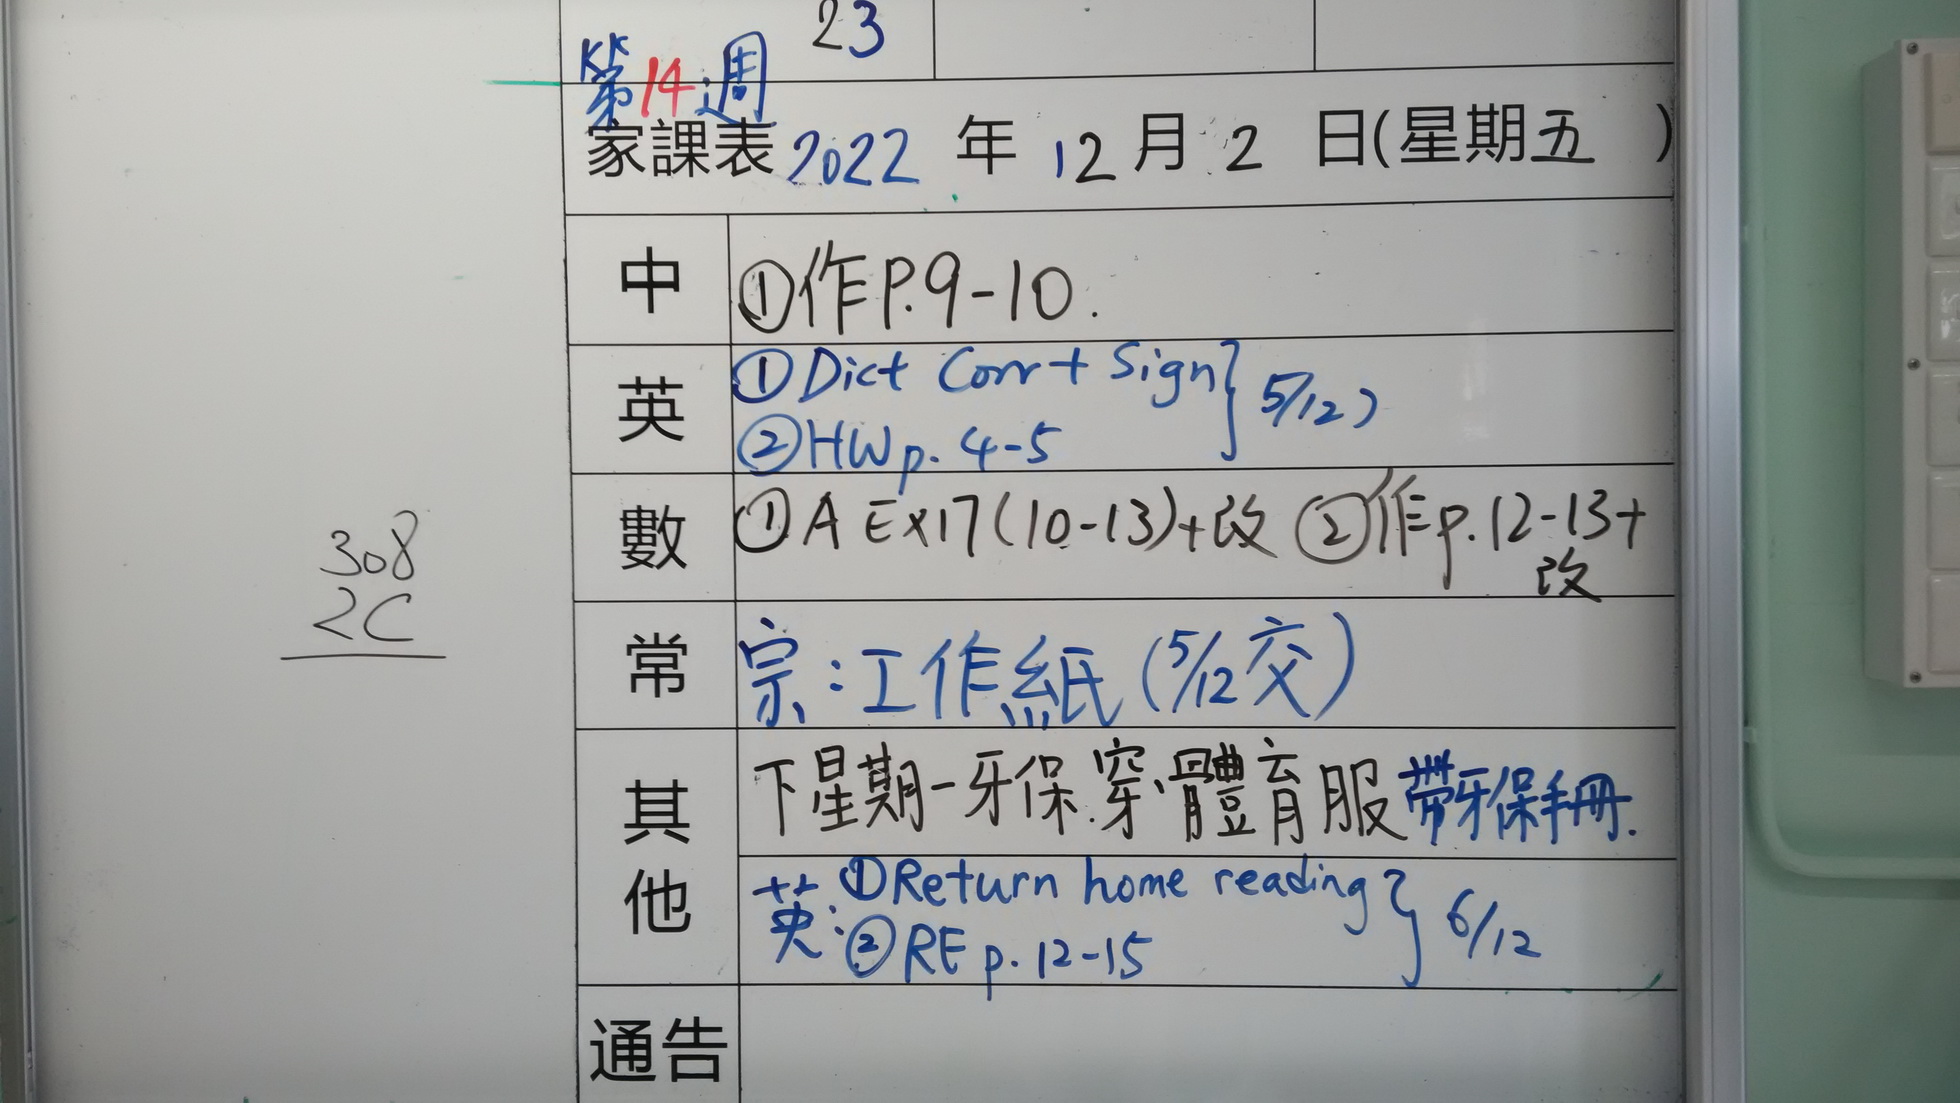 23
第14週
家課表 2022 年 12 月 2 日(星期五 )
中 ①作P.9-10.
英 ①Dict Corr + Sign } 5/12
②HW p. 4-5
數 ①A Ex17(10-13)+改 ②作p.12-13+
改
308
2C
常 宗:工作紙(5/12交)
其他 下星期一牙保.穿體育服帶牙保手冊.
英:①Return home reading } 6/12
②RE p. 12-15
通告